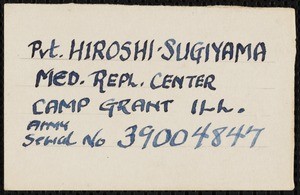 Pvt. HIROSHI-SUGIYAMA
MED. REPL. CENTER
CAMP GRANT ILL.
ARMY
Serial No 39004847